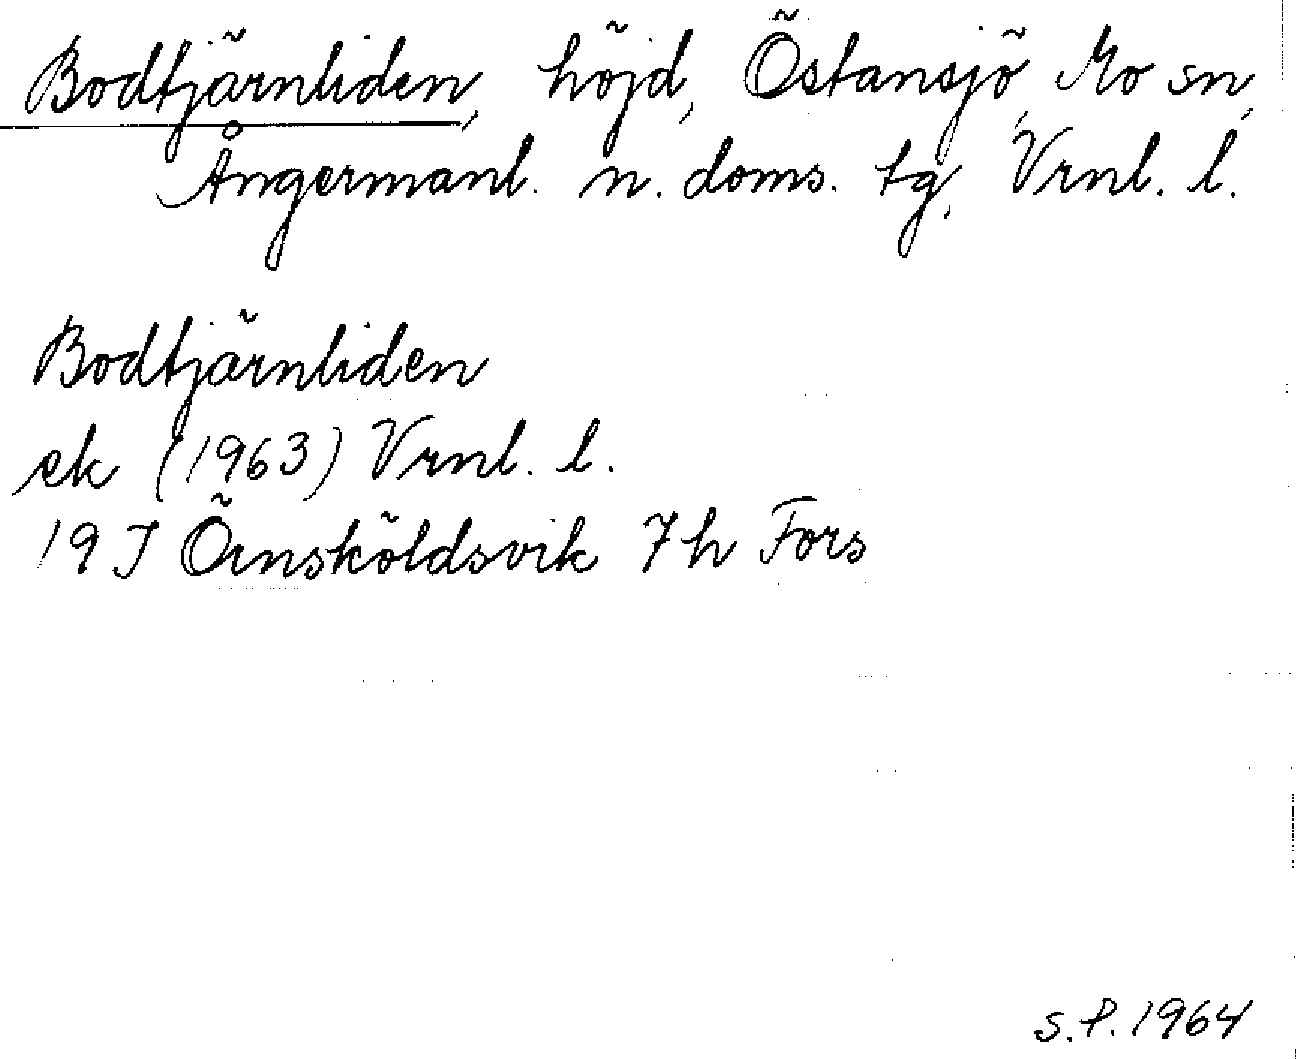 Bodtjärnliden, höjd, Östansjö, Mo sn,
Ångermanl. n. doms. tg, Vrnl. l.
Bodtjärnliden
ek (1963) Vrnl. l.
19 J Örnsköldsvik 7 h Fors
S.P. 1964